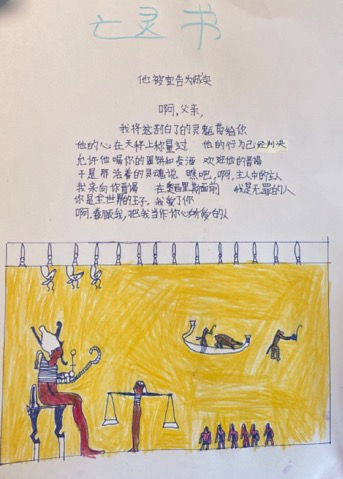 亡灵书
他被宣告为诚实
啊,父亲,
我将这剖白了的灵魂带给你
他的心在天秤上称量过 他的行为已经判决
允许他喝你的蛋饼和麦酒 欢迎他的晋谒
于是那活着的灵魂说 瞧吧,啊,主人中的主人
我来向你晋谒 在奥西里斯面前 我是无罪的人
你是全世界的王子,我爱了你
啊,看顾我,把我当作你心所爱的人